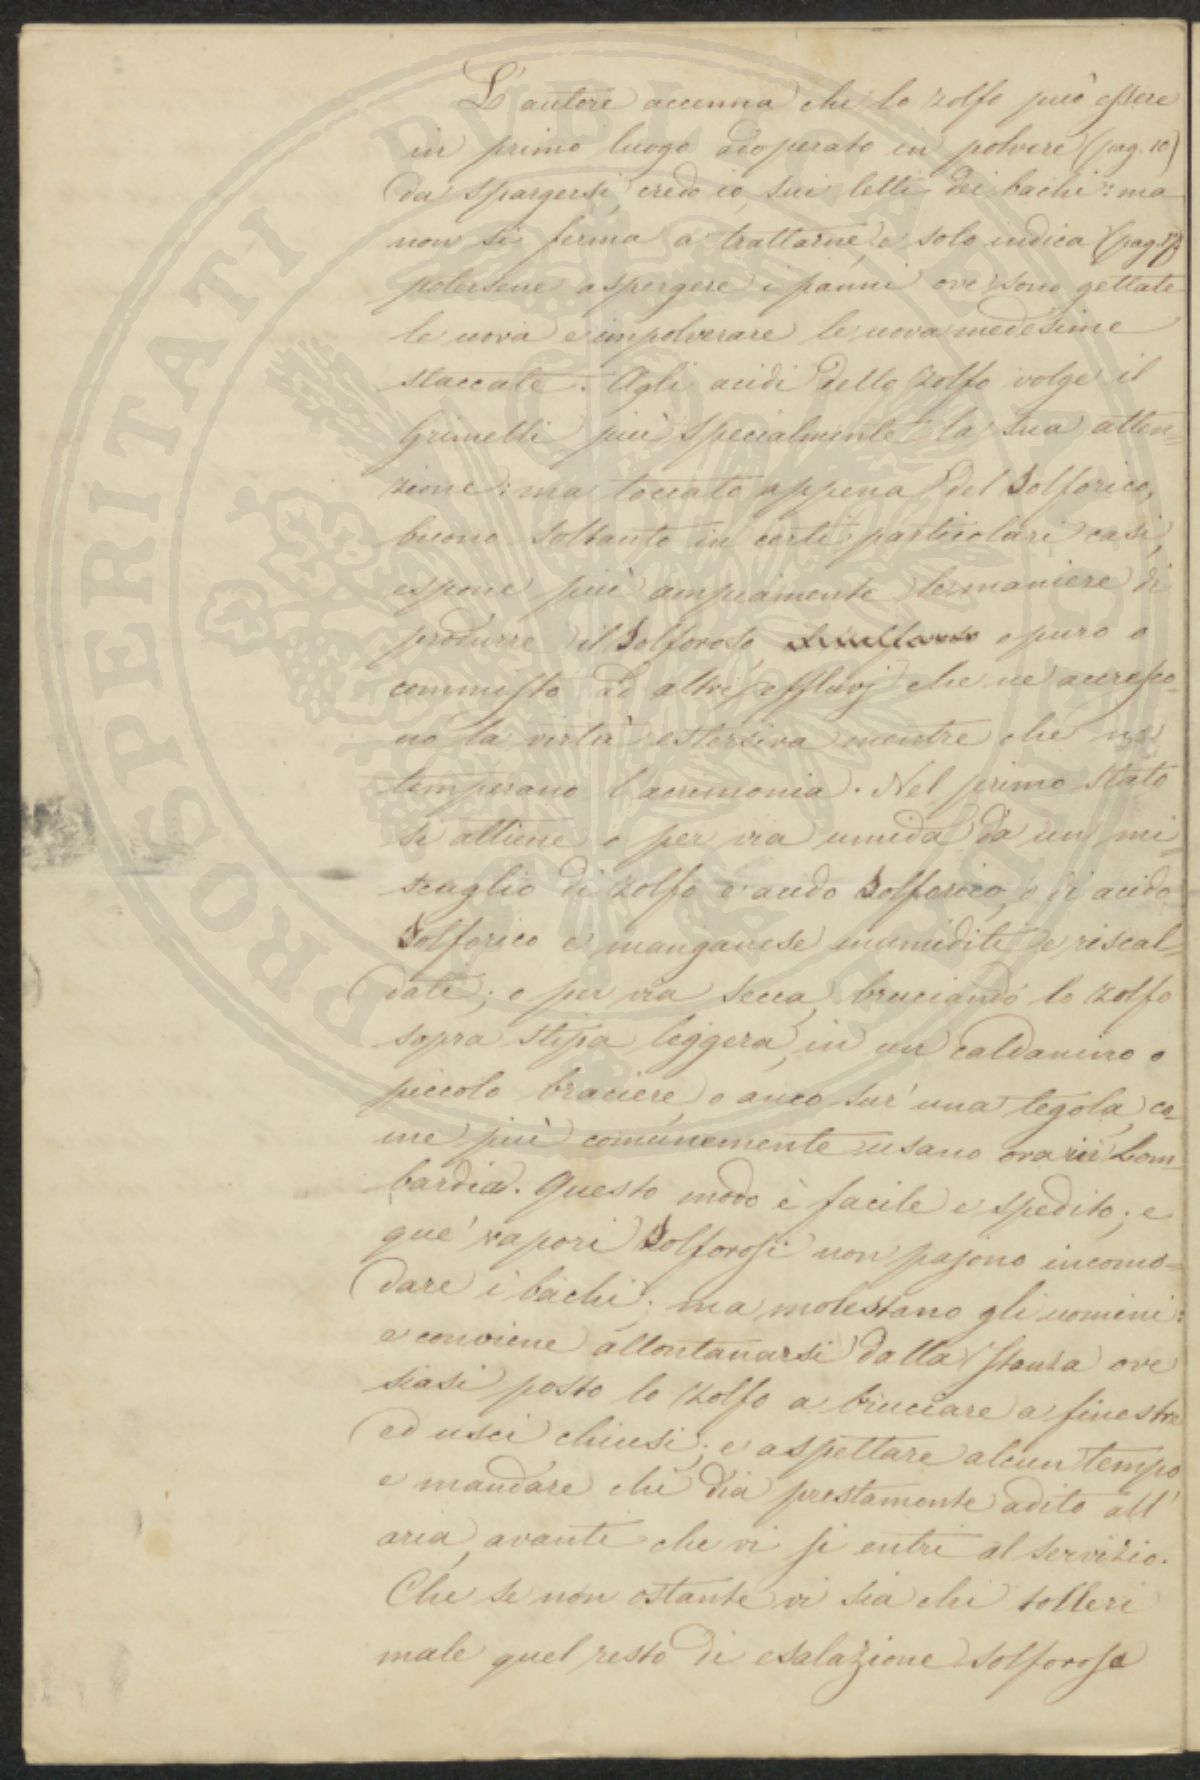 L'autore accenna che lo zolfo può essere
in primo luogo adoperato in polvere (pag. 10)
da spargersi, credo io, sui letti dei bachi: ma
non si ferma a trattarne, e solo indica (pag.
potersene aspergere i panni ove sono gettate
le uova e impolverare le uova medesime
staccate. Agli acidi dello zolfo volge il
Grimelli più specialmente la sua atten=
zione: ma toccato appena del Solforico,
buono soltanto in certi particolari casi,
espone più ampiamente le maniere di
produrre il Solforoso, o puro o
commisto ad altri effluvj che ne accresco-
no la virtù estersiva mentre che ne
temperano l'acremonia. Nel primo stato
si attiene o per via umida da un mi=
scuglio di zolfo e acido Solforico, o di acido
Solforico e manganese inumiditi e riscal=
dati; o per via secca, bruciando lo zolfo
sopra stipa leggera, in un caldanino o
piccolo braciere, o anco sur una tegola, co=
me più comunemente usano ora in Lom=
bardia. Questo modo è facile e spedito; e
que' vapori Solforosi non pajono incomo=
dare i bachi; ma molestano gli uomini:
e conviene allontanarsi dalla stanza ove
siasi posto lo zolfo a bruciare a finestre
ed usci chiusi; e aspettare alcun tempo
e mandare chi dia prestamente adito all'
aria, avanti che vi si entri al servizio.
Che se non ostante vi sia chi tolleri
male quel resto di esalazione solforosa
PUBLICAE
PROSPERITATI